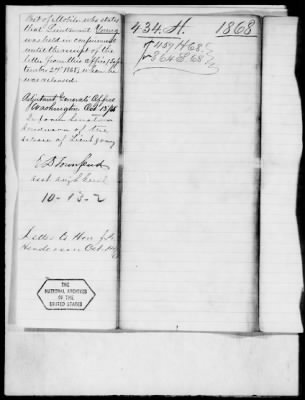 Port of Mobile who states
that Lieutenant Young
was held in confinement
until the receipt of the
letter from this office, Sep
tember 24th 1868, when he
was released.
Adjutant Generals Office
Washington Oct 13/68
Inform Senator
Henderson of the
release of Lieut Young
E D Townsend
Asst Adjt Genl
10-13-2
Letter to Hon J.
Henderson Oct
THE
NATIONAL ARCHIVES
OF THE
UNITED STATES
434. H. 1868
459 H 68
864 S 68